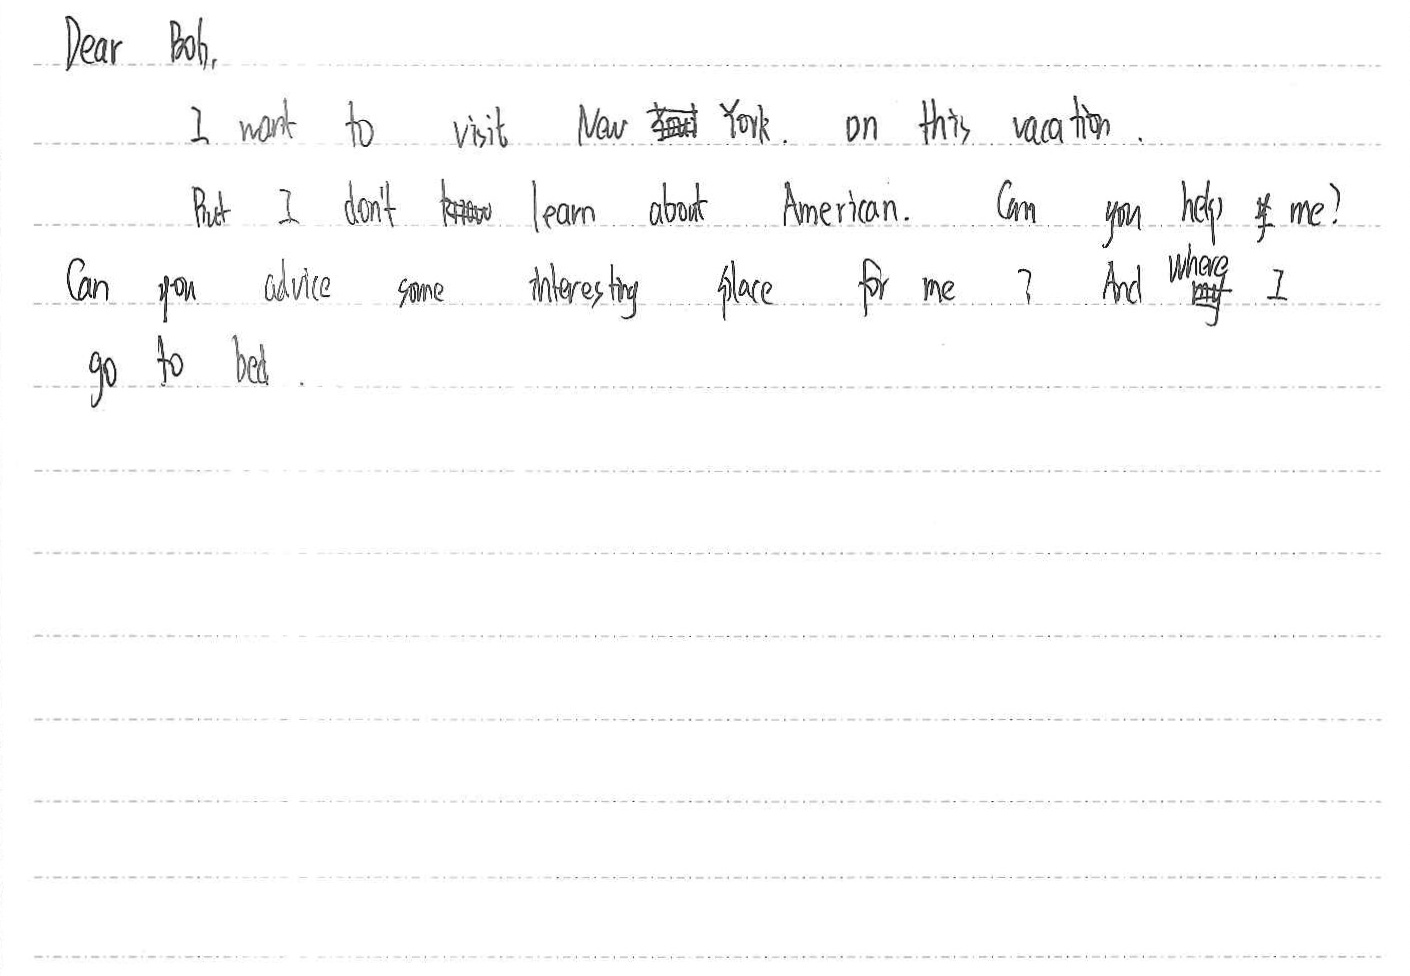 Dear Bob,
I want to visit New York. on this vacation.
But I don't know learn about American. Can you help me?
Can you advice some interesting place for me ? And where I
go to bed .